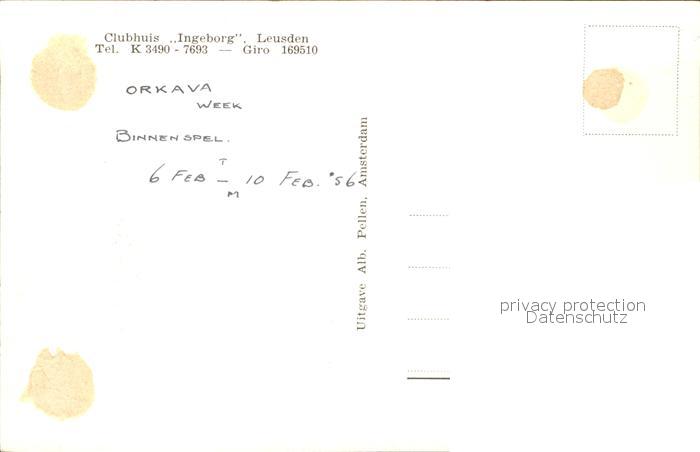 Clubhuis „Ingeborg”, Leusden
Tel. K 3490 - 7693 — Giro 169510
ORKAVA
WEEK
BINNENSPEL.
6 FEB T – M 10 FEB. '56
Uitgave Alb. Pellen, Amsterdam
privacy protection
Datenschutz